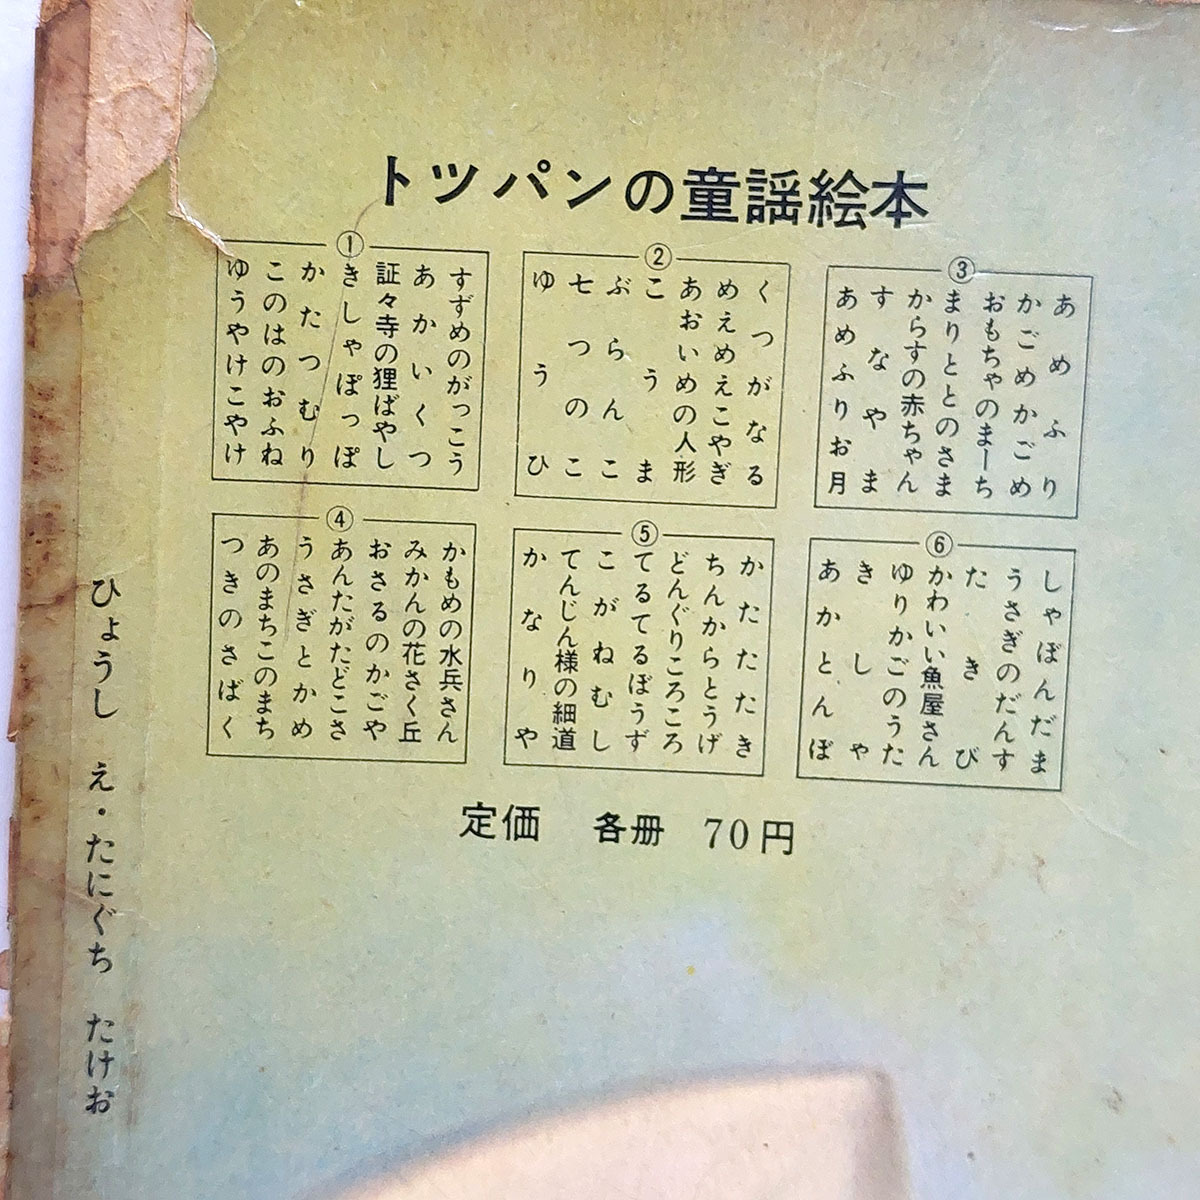 トツパンの童謡絵本
①
すずめのがっこう
あかいくつ
証々寺の狸ばやし
きしゃぽっぽ
かたつむり
このはのおふね
ゆうやけこやけ
②
くつがなる
めえめえこやぎ
あおいめの人形
こうま
ぶらんこ
七つのこ
ゆうひ
③
あめふり
かごめかごめ
おもちゃのまーち
まりととのさま
からすの赤ちゃん
すなやま
あめふりお月
④
かもめの水兵さん
みかんの花さく丘
おさるのかごや
あんたがたどこさ
うさぎとかめ
あのまちこのまち
つきのさばく
⑤
かたたたき
ちんからとうげ
どんぐりころころ
てるてるぼうず
こがねむし
てんじん様の細道
かなりや
⑥
しゃぼんだま
うさぎのだんす
たきび
かわいい魚屋さん
ゆりかごのうた
きしゃ
あかとんぼ
定価 各冊 70円
ひょうし え・たにぐち たけお